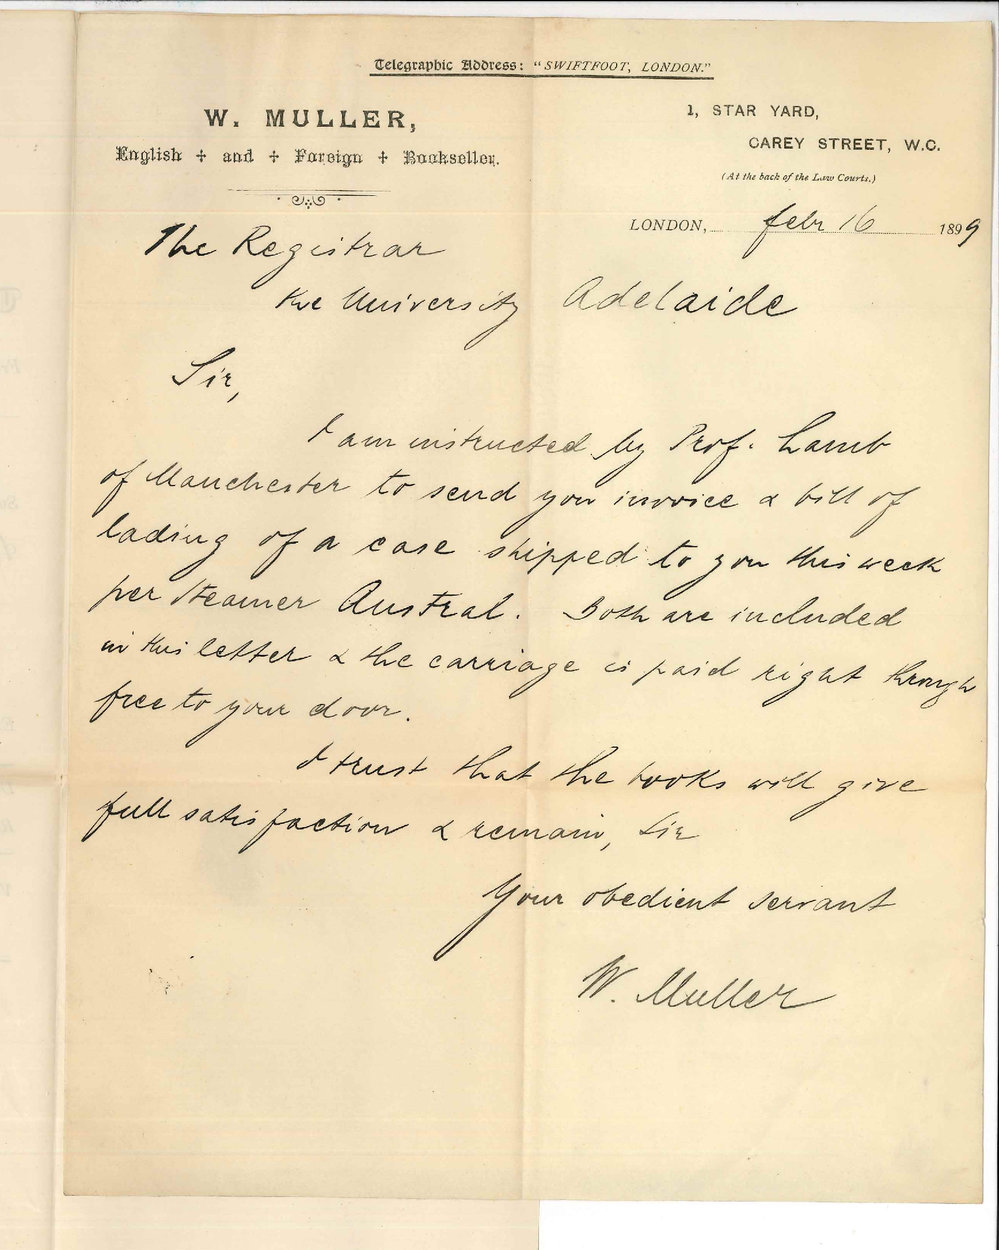 Telegraphic Address: "SWIFTFOOT, LONDON."
W. MULLER,
English + and + Foreign + Bookseller.
1, STAR YARD,
CAREY STREET, W.C.
(At the back of the Law Courts.)
LONDON, febr 16 1899
The Registrar
the University Adelaide
Sir,
I am instructed by Prof. Lamb
of Manchester to send you invoice & bill of
lading of a case shipped to you this week
per steamer Austral. Both are included
in this letter & the carriage is paid right through
free to your door.
I trust that the books will give
full satisfaction & remain, Sir
Your obedient servant
W. Muller